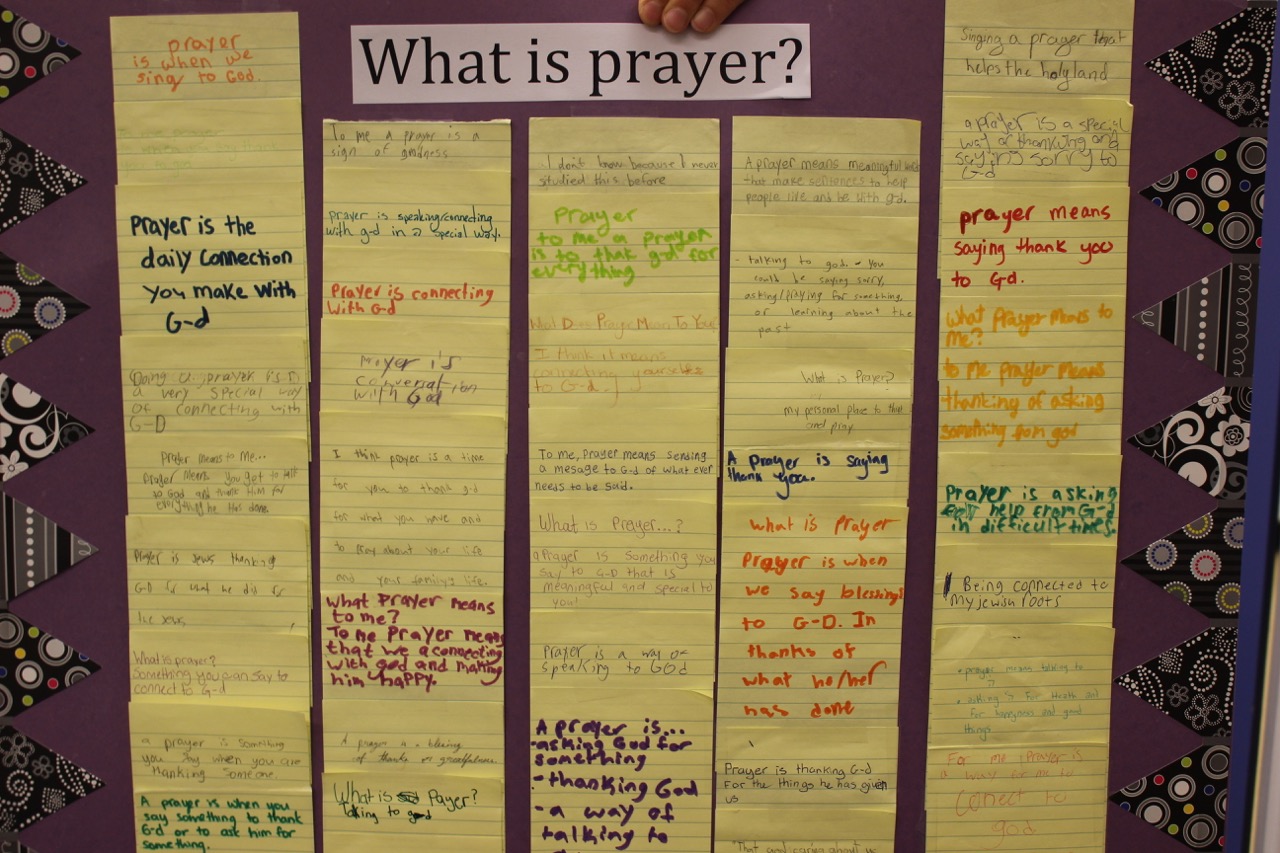 What is prayer?
prayer
is when we
sing to God.
Prayer is the
daily connection
you make with
G-d
Doing a prayer is
a very special way
of connecting with
G-D
Prayer means to me...
Prayer means you get to talk
to God and thank Him for
everything he has done.
Prayer is Jews thanking
G-D for what he did for
the Jews
What is prayer?
Something you can say to
connect to G-d
a prayer is something
you say when you are
thanking someone.
A prayer is when you
say something to thank
G-d or to ask him for
something.
To me a prayer is a
sign of
prayer is speaking/connecting
with g-d in a special way.
Prayer is connecting
with G-d
is
conversation
with God
I think prayer is a time
for you to thank g-d
for what you have and
to pray about your life
and your family's life.
What prayer means
to me?
To me prayer means
that we a connecting
with god and making
him happy.
A prayer is a blessing
of thanks or greatfulness.
What is Payer?
Talking to god
I don't know because I never
studied this before
Prayer
to me a prayer
is to thak g-d for
everything
What Does Prayer Mean To You?
I think it means
connecting
to G-d.
To me, Prayer means sending
a mesage to G-d of what ever
needs to be said.
What is Prayer...?
a Prayer is Something you
say to G-D that is
meaningful and special to
you!
Prayer is a way of
speaking to GOd
A prayer is...
-asking God for
something
-thanking God
-a way of
talking to
A prayer means meaningful
that make sentences to help
people live and be with g-d.
- talking to god. - You
could be saying sorry,
asking/praying for something,
or learning about the
past
What is Prayer?
my personal place to
and pray
A Prayer is saying
thank you.
what is prayer
Prayer is when
we say blessings
to G-D. In
thanks of
what he/her
has done
Prayer is thanking G-d
For the things he has given
us
That and caring about us
Singing a prayer that
helps the holyland
a prayer is a special
way of thanking and
saying sorry to
G-d
prayer means
saying thank you
to G-d.
What Prayer means to
me?
to me prayer means
thanking of asking
something from god
Prayer is asking
help from G-d
in difficult times.
Being connected to
my jewish roots
• prayer means talking to
• asking is for Health and
for and good
things
For me prayer is
a way for me to
conect to
god